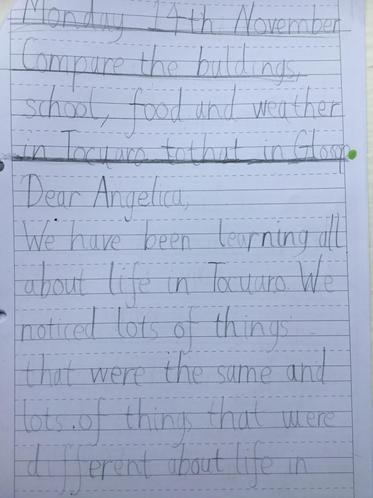 Monday 14th November
Compare the buldings,
school, food and weather
in Tocuaro tothat in Glossop
Dear Angelica,
We have been learning all
about life in Tocuaro. We
noticed lots of things
that were the same and
lots of things that were
different about life in